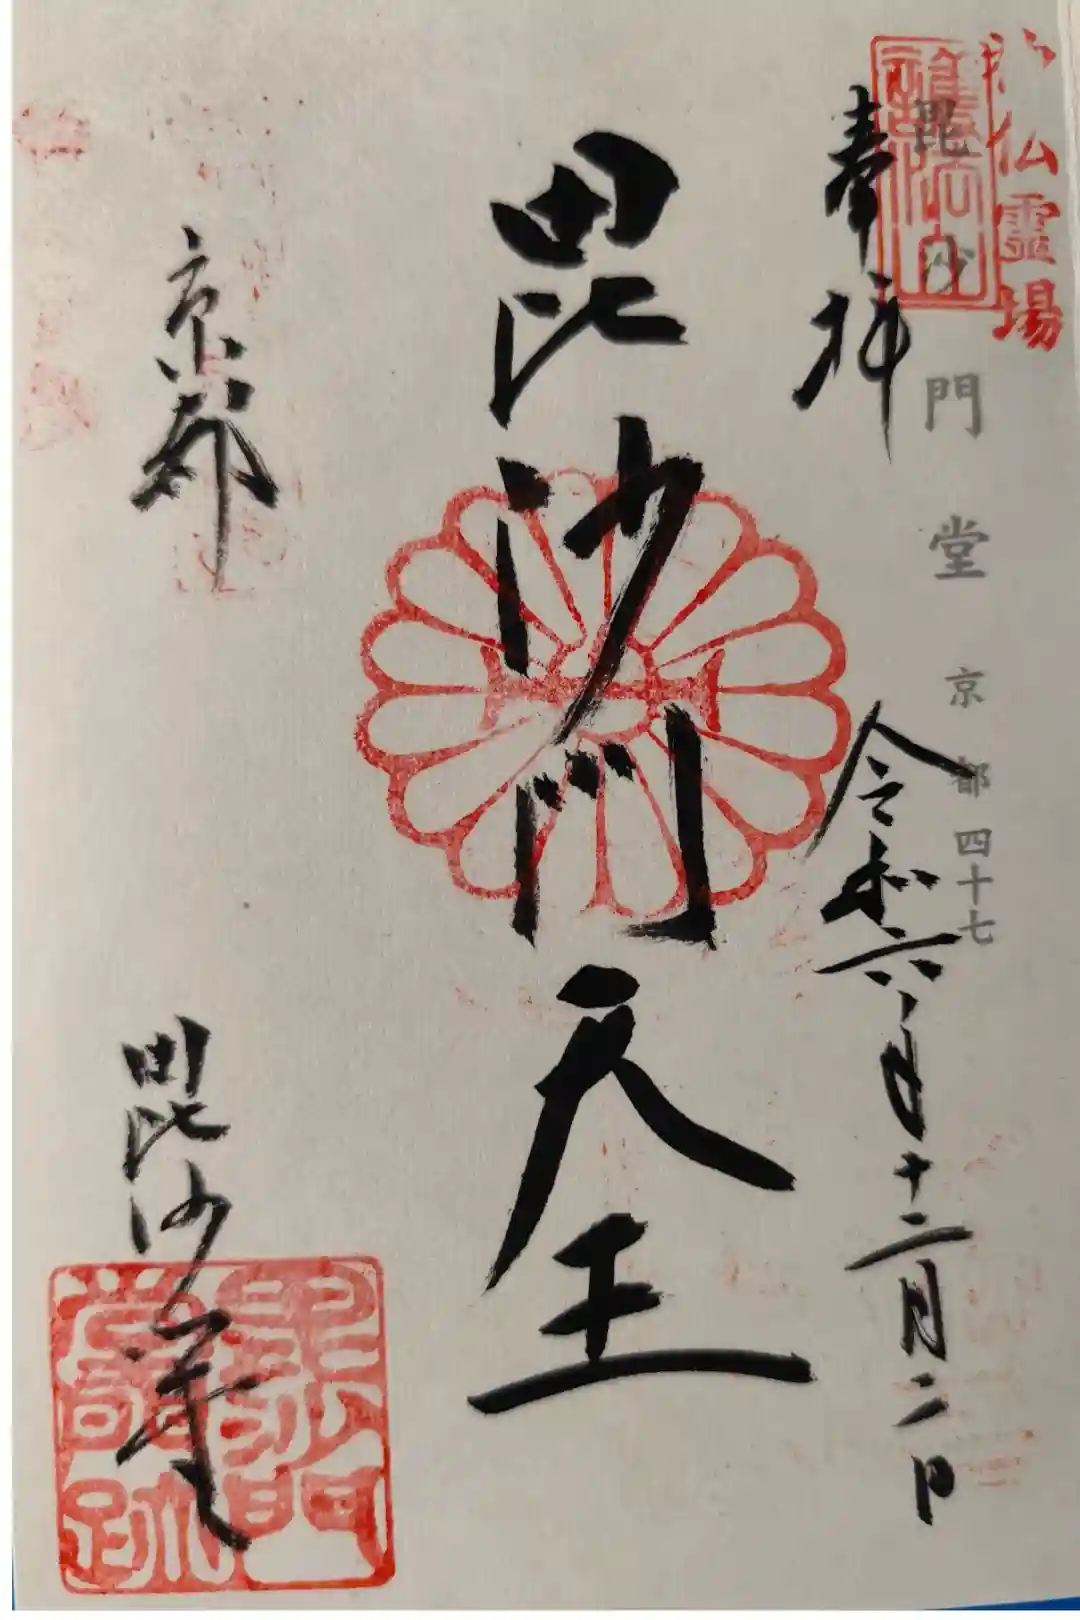 仏霊場
毘沙門堂 京都四十七
護法山
奉拝
令和六年十二月二日
毘沙門天王
京都
毘沙門堂